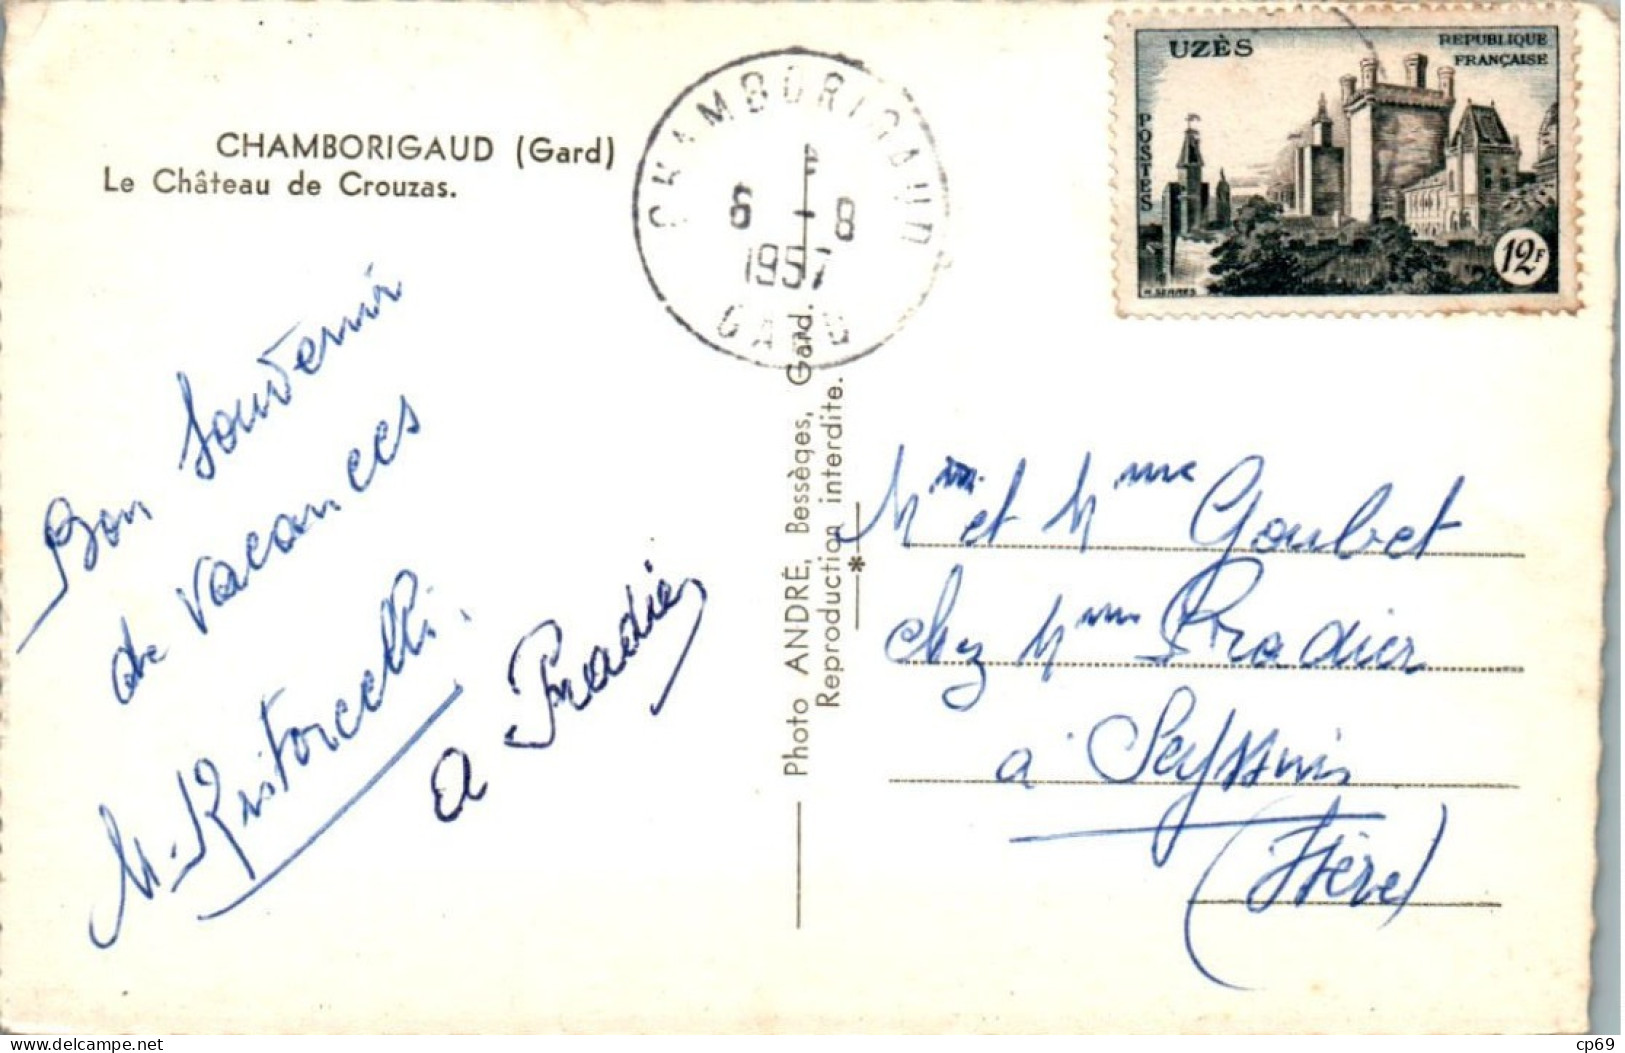 CHAMBORIGAUD (Gard)
Le Château de Crouzas.
CHAMBORIGAUD
6 - 8
1957
GARD
UZÈS
REPUBLIQUE
FRANÇAISE
POSTES
12F
Bon souvenir
de vacances
M. Ristorcelli.
A Pradier
Photo ANDRÉ, Bessèges, Gard.
Reproduction interdite.
*
et Mme Goubet
chez Mme Pradier
à Seyssins
(Isère)
delcampe.net
cp69